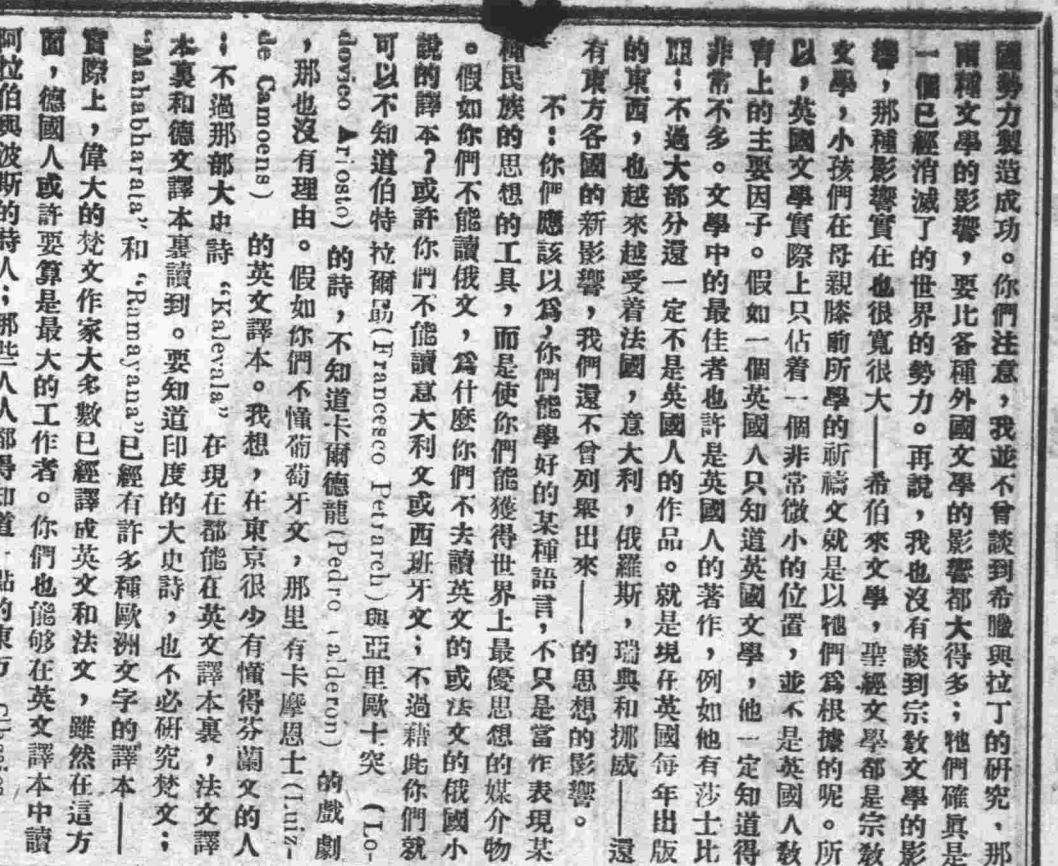 國勢力製造成功。你們注意，我並不曾談到希臘與拉丁的研究，那
兩種文學的影響，要比各種外國文學的影響都大得多；牠們確眞是
一個已經消滅了的世界的勢力。再說，我也沒有談到宗敎文學的影
響，那種影響實在也很寬很大——希伯來文學，聖經文學都是宗敎
文學，小孩們在母親膝前所學的祈禱文就是以牠們爲根據的呢。所
以，英國文學實際上只佔着一個非常微小的位置，並不是英國人敎
育上的主要因子。假如一個英國人只知道英國文學，他一定知道得
非常不多。文學中的最佳者也許是英國人的著作，例如他有莎士比
亞；不過大部分還一定不是英國人的作品。就是現在英國每年出版
的東西，也越來越受着法國，意大利，俄羅斯，瑞典和挪威——還
有東方各國的新影響，我們還不曾列舉出來——的思想的影響。
不：你們應該以爲，你們能學好的某種語言，不只是當作表現某
種民族的思想的工具，而是使你們能獲得世界上最優思想的媒介物
。假如你們不能讀俄文，爲什麼你們不去讀英文的或法文的俄國小
說的譯本？或許你們不能讀意大利文或西班牙文；不過藉此你們就
可以不知道伯特拉爾前(Francesco Petrarch)與亞里歐十突 (Lo-
dovico Ariosto) 的詩，不知道卡爾德龍(Pedro Calderon) 的戲劇
，那也沒有理由。假如你們不懂葡萄牙文，那里有卡摩恩士(Luiz-
de Camoens) 的英文譯本。我想，在東京很少有懂得芬蘭文的人
；不過那部大史詩 “Kalevala” 在現在都能在英文譯本裏，法文譯
本裏和德文譯本裏讀到。要知道印度的大史詩，也不必研究梵文；
“Mahabharala”和 “Ramayana”已經有許多種歐洲文字的譯本——
實際上，偉大的梵文作家大多數已經譯成英文和法文，雖然在這方
面，德國人或許要算是最大的工作者。你們也能够在英文譯本中讀
阿拉伯與波斯的詩人；那些人人都得知道一點的東方